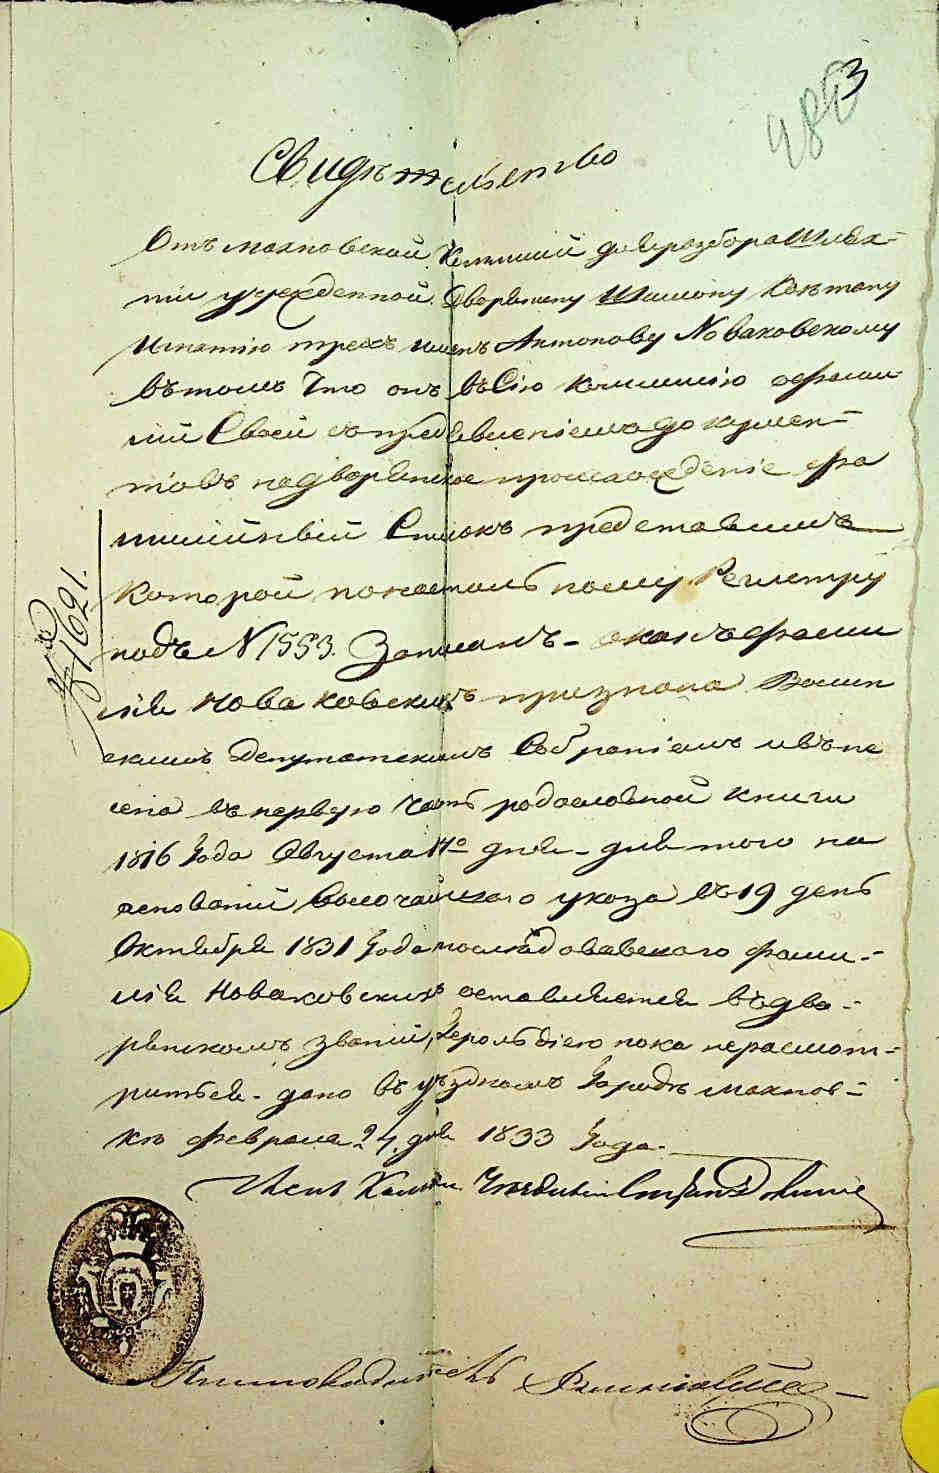 3
Свидѣтельство
Отъ махновской Коммиссии для разбора Шлях-
ти учрежденной. Дворянину Шимону Каэтану
Игнатию трехъ именъ Антонову Новаковскому
въ томъ что онъ въ Сію коммиссію о фами
лии Своей съ предъявленіемъ докумен-
товъ на дворянское происхожденіе фа
милійный Списокъ представилъ
Которой по настольному Регистру
подъ N 1553. Записанъ - а какъ фами
лія Новаковскихъ признана Волын
скимъ депутатскимъ Собраніемъ и внѣ
сена въ первую часть родословной книги
1816 Года Августа дня - для того на
основаніи высочайшаго указа въ 19 день
Октября 1831 Года последовавшаго фами-
лія Новаковскихъ оставляется въ дво-
рянскомъ званіи, Герольдіею пока не разсмот-
рится - дано въ уѣздномъ Городѣ махнов-
кѣ февраля 24 дня 1833 Года.
№ 1691.
Членъ
Письмоводитель